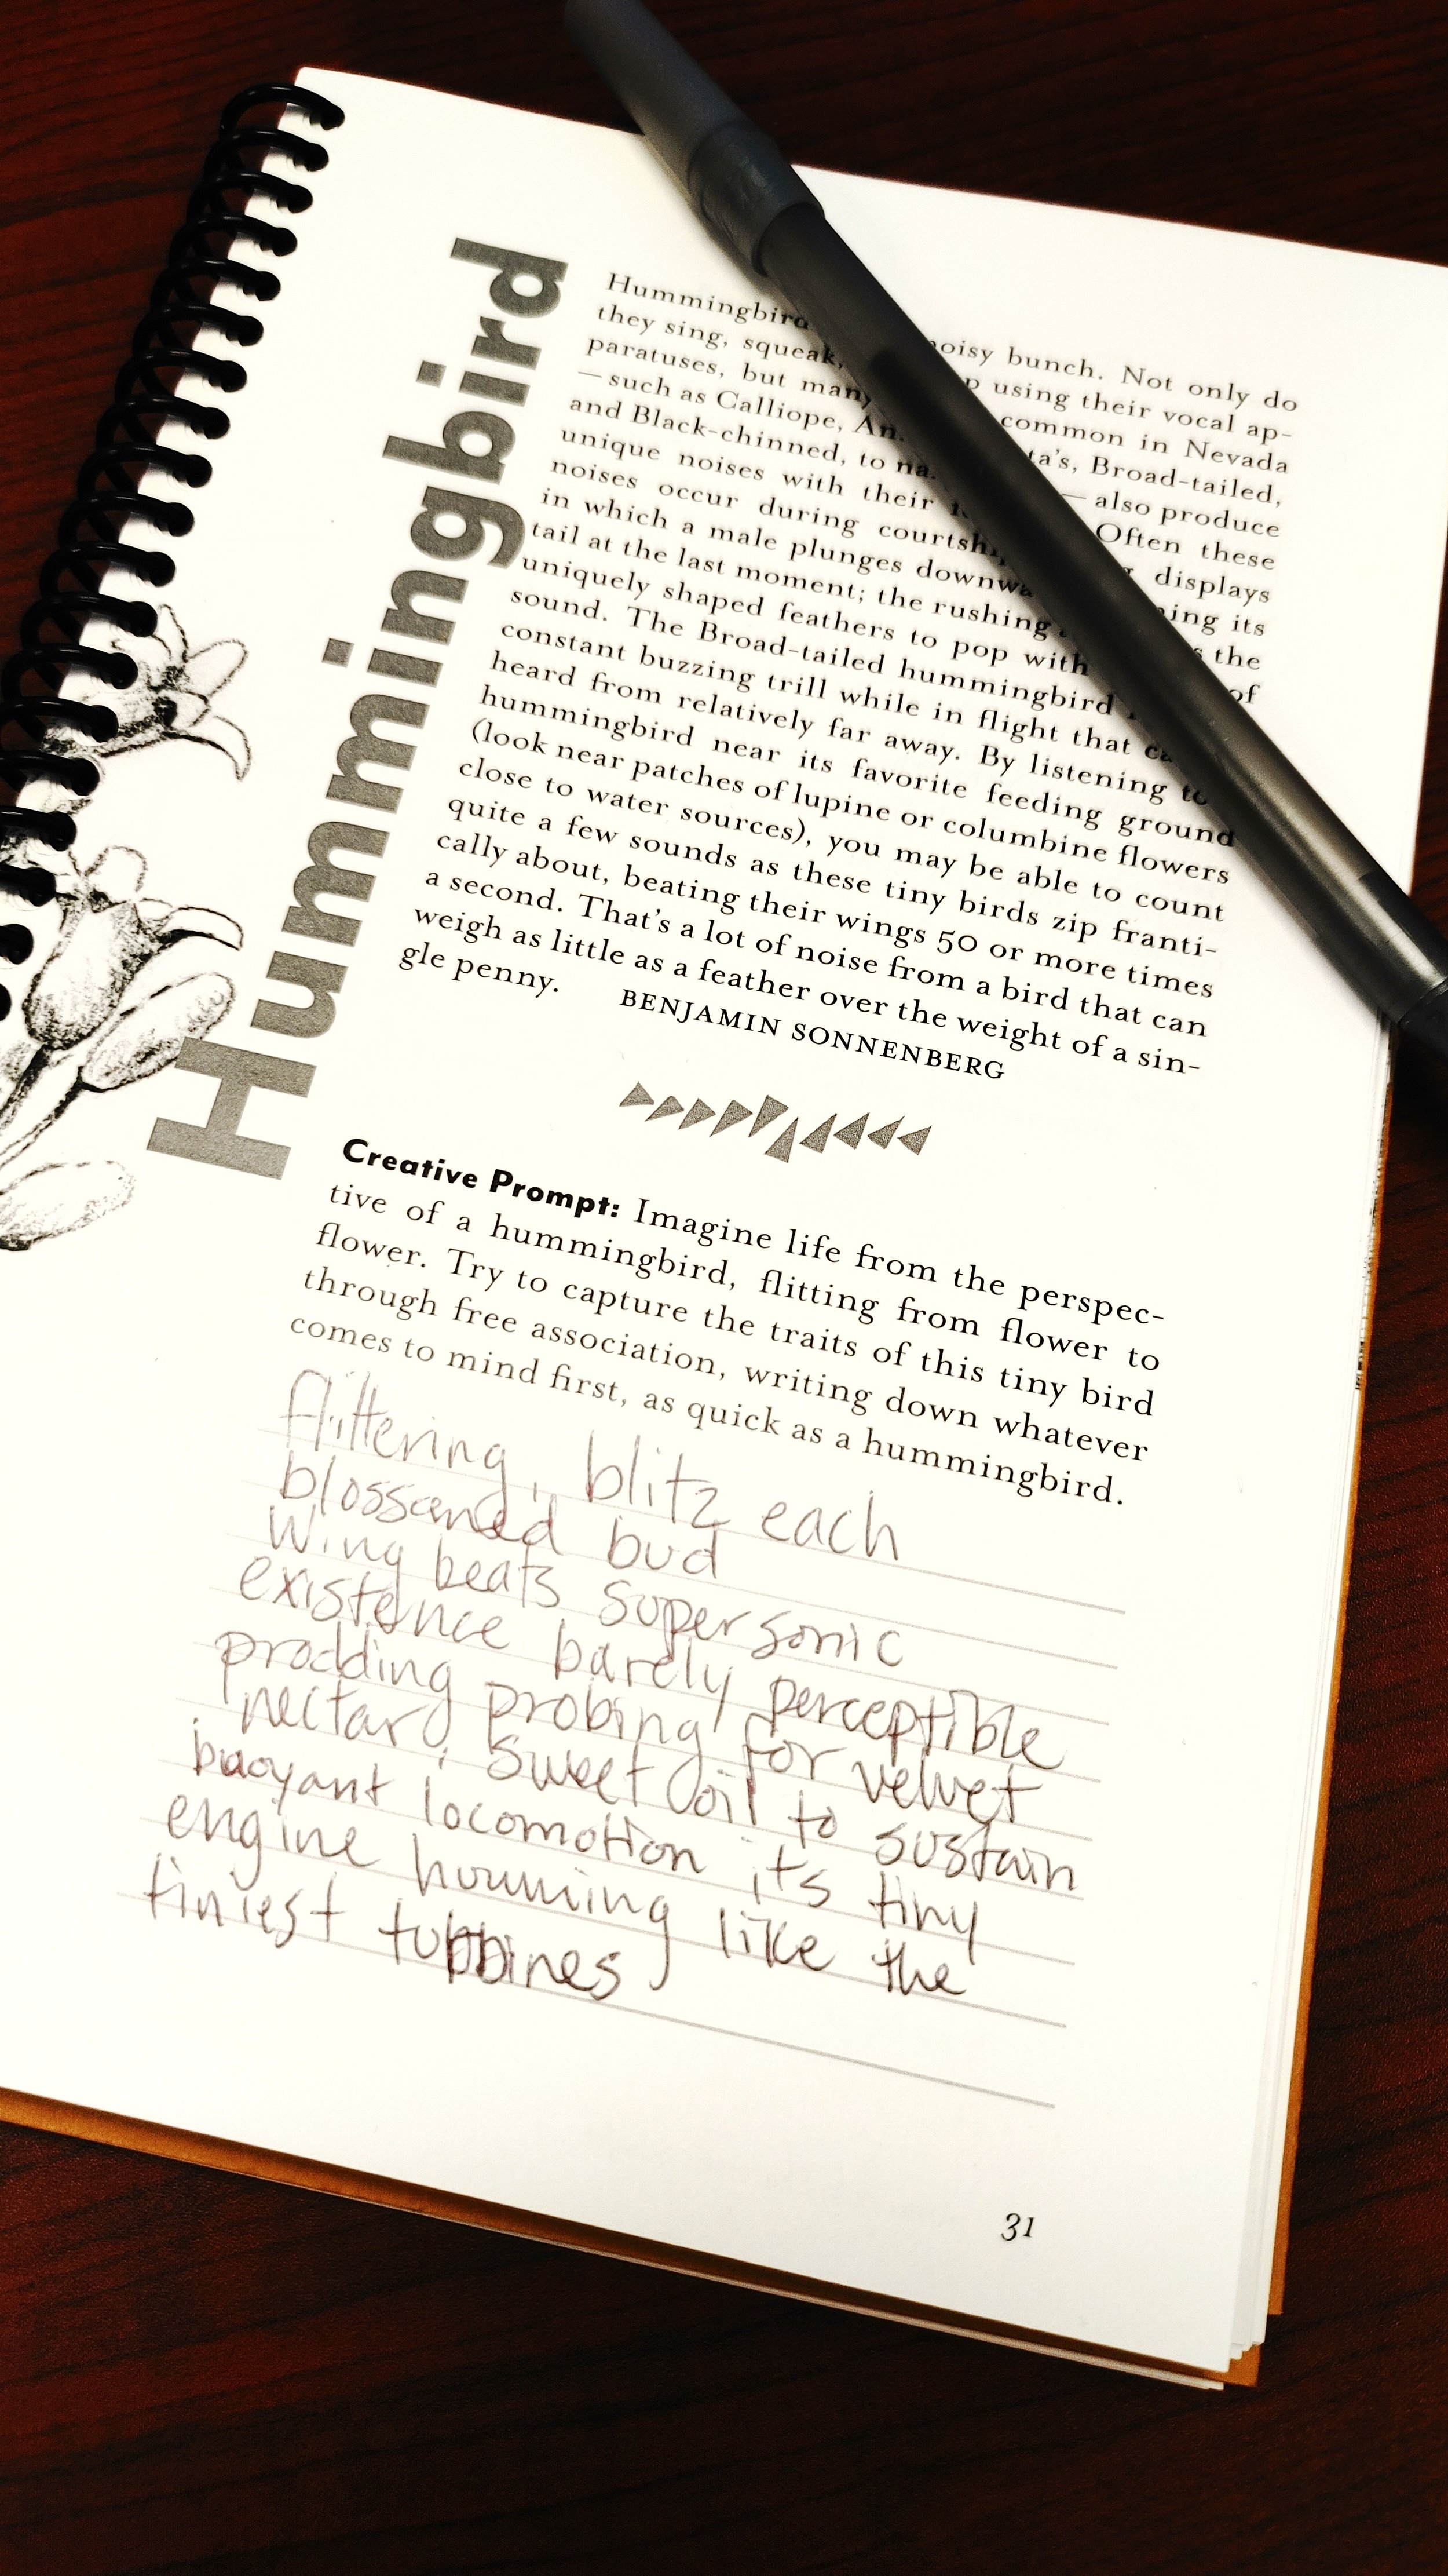 Hummingbird
Hummingbird noisy bunch. Not only do
they sing, squeak, using their vocal ap-
paratuses, but many common in Nevada
—such as Calliope, Broad-tailed,
and Black-chinned, to — also produce
unique noises with their Often these
noises occur during displays
in which a male plunges its
tail at the last moment; the rushing the
uniquely shaped feathers to pop with of
sound. The Broad-tailed hummingbird
constant buzzing trill while in flight that
heard from relatively far away. By listening
hummingbird near its favorite feeding ground
(look near patches of lupine or columbine flowers
close to water sources), you may be able to count
quite a few sounds as these tiny birds zip franti-
cally about, beating their wings 50 or more times
a second. That's a lot of noise from a bird that can
weigh as little as a feather over the weight of a sin-
gle penny.
BENJAMIN SONNENBERG
Creative Prompt: Imagine life from the perspec-
tive of a hummingbird, flitting from flower to
flower. Try to capture the traits of this tiny bird
through free association, writing down whatever
comes to mind first, as quick as a hummingbird.
flittering, blitz each
blossomed bud
wing beats supersonic
existence barely perceptible
prodding probing for velvet
nectar, sweet oil to sustain
buoyant locomotion it's tiny
engine humming like the
tiniest turbines
31